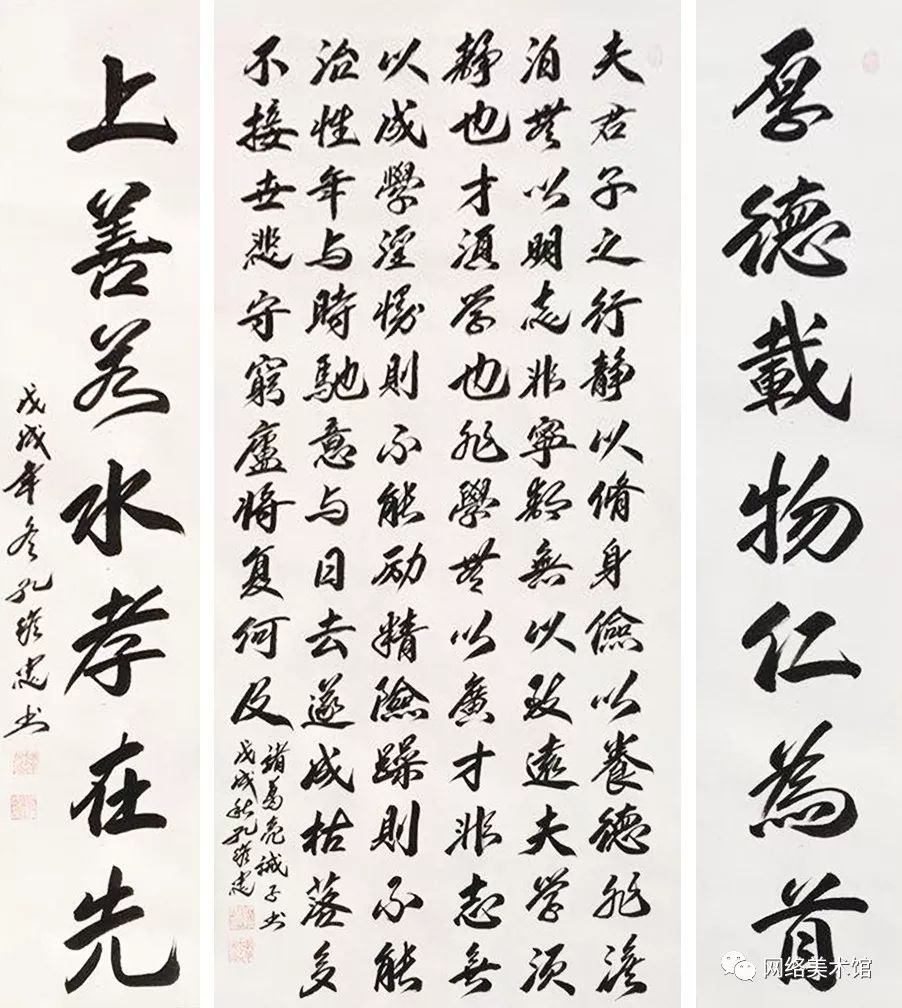 厚德載物仁為首
夫君子之行静以脩身儉以養德非澹
泊無以明志非寧静無以致遠夫学須
静也才湏学也非學無以廣才非志無
以成學淫慢則不能励精險躁則不能
治性年与時馳意与日去遂成枯落多
不接世悲守窮廬將复何及
諸葛亮誡子书
戊戌秋孔
上善若水孝在先
戊戌年冬孔 书
网络美术馆